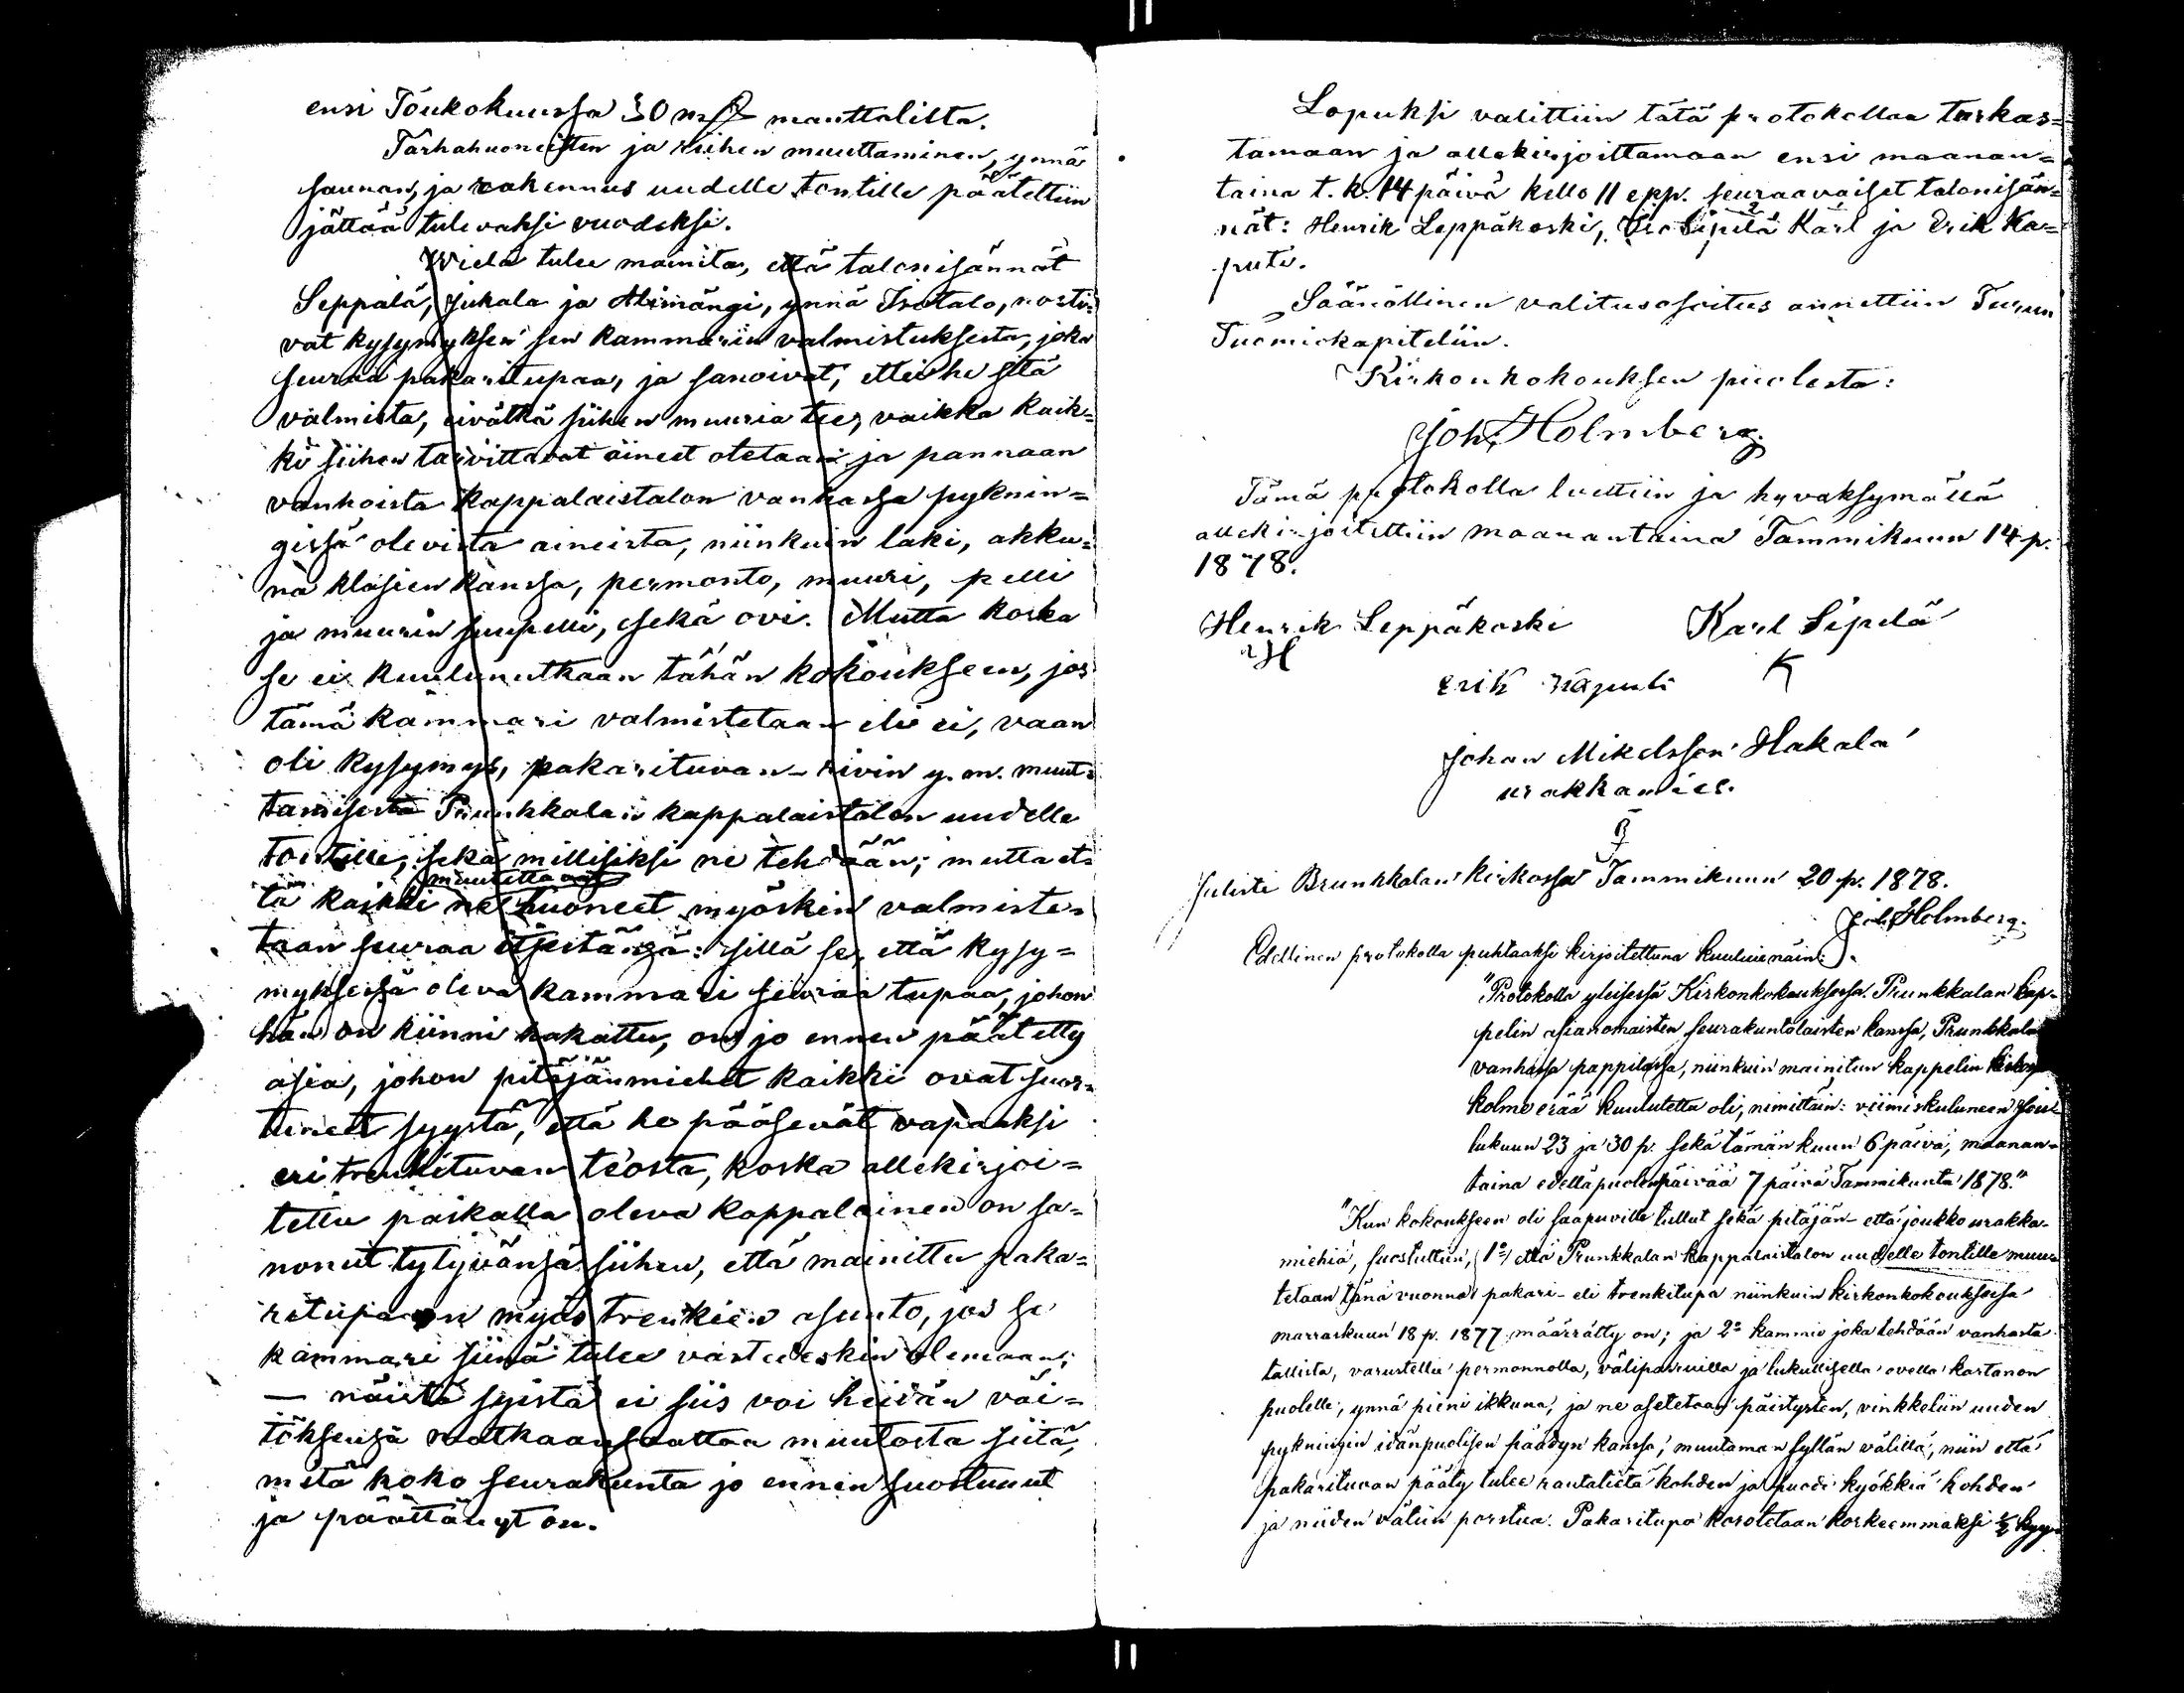 ensi Toukokuussa 30 mf manttalilta.
Tarhahuoneitten ja riihen muuttaminen, ynnä
saunan, ja rakennus uudelle tontille päätettiin
jättää tulevaksi vuodeksi.
Wielä tulee mainita, että talonisännät
Seppälä, Jukala ja Alimängi, ynnä Isotalo, nosti-
vat kysymyksen sen kammarin valmistuksesta, joka
seuraa pakaritupaa, ja sanoivat, ettei he sitä
valmista, eivätkä siihen muuria tee, vaikka kaik=
ki siihen tarvittavat aineet otetaan ja pannaan
vanhoista kappalaistalon vanhassa pyknin=
gissä olevista aineista, niinkuin laki, akku=
na klasien kanssa, permanto, muuri, pelli
ja muurin suupelli, sekä ovi. Mutta koska
se ei kuulunutkaan tähän kokoukseen, jos
tämä kammari valmistetaan eli ei, vaan
oli kysymys, pakarituvan-rivin y. m. muut=
tamisesta Prunkkalan kappalaistalon uudelle
tontille, sekä millisiksi ne tehdään; mutta et=
muutettavat
tä kaikki ne huoneet myöskin valmiste=
taan seuraa itsestänsä: sillä se, että kysy=
myksessä oleva kammari seuraa tupaa, johon
hän on kiinni hakattu, on jo ennen päätetty
asia, johon pitäjänmiehet kaikki ovat suos=
tuneet syystä, että he pääsevät vapaaksi
eri trenkituvan teosta, koska allekirjoi=
tettu paikalla oleva kappalainen on sa=
nonut tytyvänsä siihen, että mainittu paka=
ritupa on myös trenkien asunto, jos se
kammari siinä tulee vasteedeskin olemaan;
— näistä syistä ei siis voi heidän väi=
töksensä matkaansaattaa muutosta siitä,
mitä koko seurakunta jo ennen suostunut
ja päättänyt on.
Lopuksi valittiin tätä protokollaa tarkas=
tamaan ja allekirjoittamaan ensi maanan=
taina t. k. 14 päivä kello 11 epp. seuraavaiset talonisän=
nät: Henrik Leppäkoski, Sipilä Karl ja Erik Ka=
puti.
Säänöllinen valitusosoitus annettiin Turun
Tuomiokapiteliin.
Kirkonkokouksen puolesta:
Joh. Holmberg.
Tämä protokolla luettiin ja hyvaksymällä
allekirjoitettiin maanantaina Tammikuun 14 p.
1878.
Henrik Leppäkoski Karl Sipilä
H K
Erik Kaputi
Johan Mikelsson Hakala
urakkamies.
Julisti Brunkkalan kirkossa Tammikuun 20 p. 1878.
Joh. Holmberg.
Edellinen protokolla puhtaaksi kirjoitettuna kuuluu näin:
"Protokolla yleisessä Kirkonkokouksessa Prunkkalan kap=
pelin asianomaisten seurakuntalaisten kanssa, Prunkkalan
vanhassa pappilassa, niinkuin mainitun kappelin
kolme erää kuulutettu oli, nimittäin: viimiskuluneen Jou=
lukuun 23 ja 30 p. sekä tämän kuun 6 päivä, maanan=
taina edelläpuolenpäivää 7 päivä Tammikuuta 1878."
"Kun kokoukseen oli saapuville tullut sekä pitäjän- että joukko urakka-
miehiä, suostuttiin, 1o/ että Prunkkalan kappalaistalon uudelle tontille muu=
tetaan tänä vuonna pakari- eli trenkitupa niinkuin kirkonkokouksessa
marraskuun 18 p. 1877 määrätty on; ja 2o kammio joka tehdään vanhasta
tallista, varustettu permannolla, väliparruilla ja lukullisella ovella kartanon
puolelle, ynnä pieni ikkuna, ja ne asetetaan päistysten, vinkkeliin uuden
pykningin idänpuolisen päädyn kanssa, muutaman syllän välillä, niin että
pakarituvan pääty tulee rantatietä kohden ja puodi kyökkiä kohden
ja niiden väliin porstua. Pakaritupa korotetaan korkeemmaksi ½ kyy=